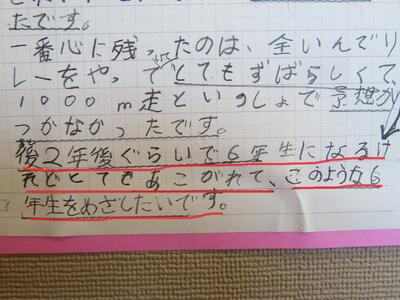 たです。
一番心に残ったのは、全いんでリ
レーをやってとてもずばらしくて、
1000m走といっしょで予想が
つかなかったです。
後2年後ぐらいで6年生になるけ
れどとてもあこがれて、このような6
年生をめざしたいです。